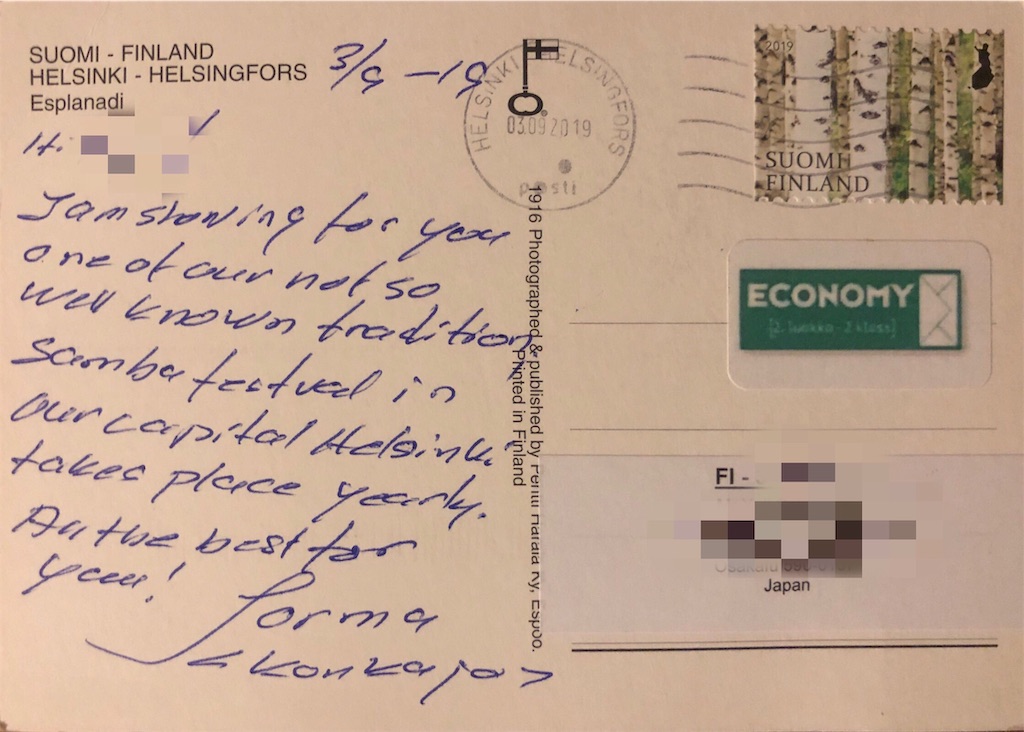 SUOMI - FINLAND
HELSINKI - HELSINGFORS
Esplanadi
3/9 -19
Hi
I am showing for you
one of our not so
well known tradition
samba festval in
our capital Helsinki
takes place yearly.
All the best for
you!
Jorma
<konkajo>
HELSINKI HELSINGFORS
03.09.2019
posti
1916 Photographed & published by Pentti Harala Ky, Espoo.
Printed in Finland
2019
SUOMI
FINLAND
ECONOMY
[2. luokka - 2 klass]
FI -
Japan